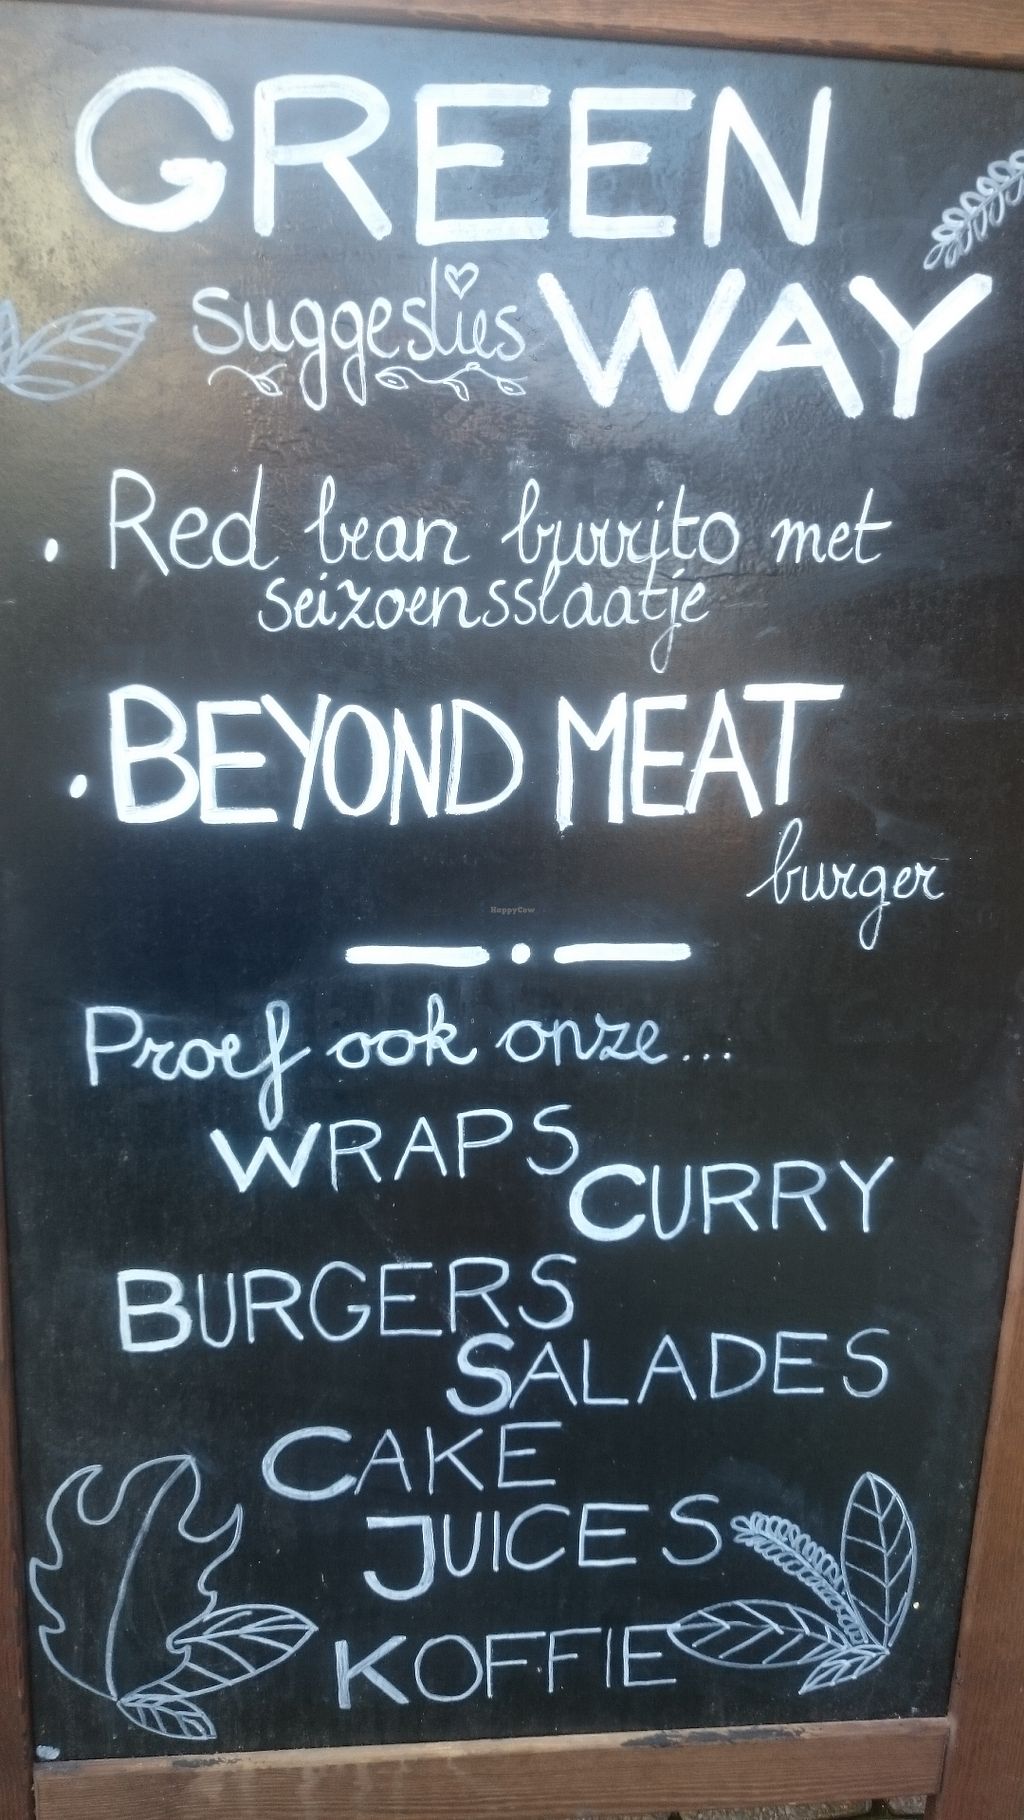 GREEN
suggesties WAY
• Red bean burrito met
seizoensslaatje
• BEYOND MEAT
burger
HappyCow
Proef ook onze...
WRAPS
CURRY
BURGERS
SALADES
CAKE
JUICES
KOFFIE